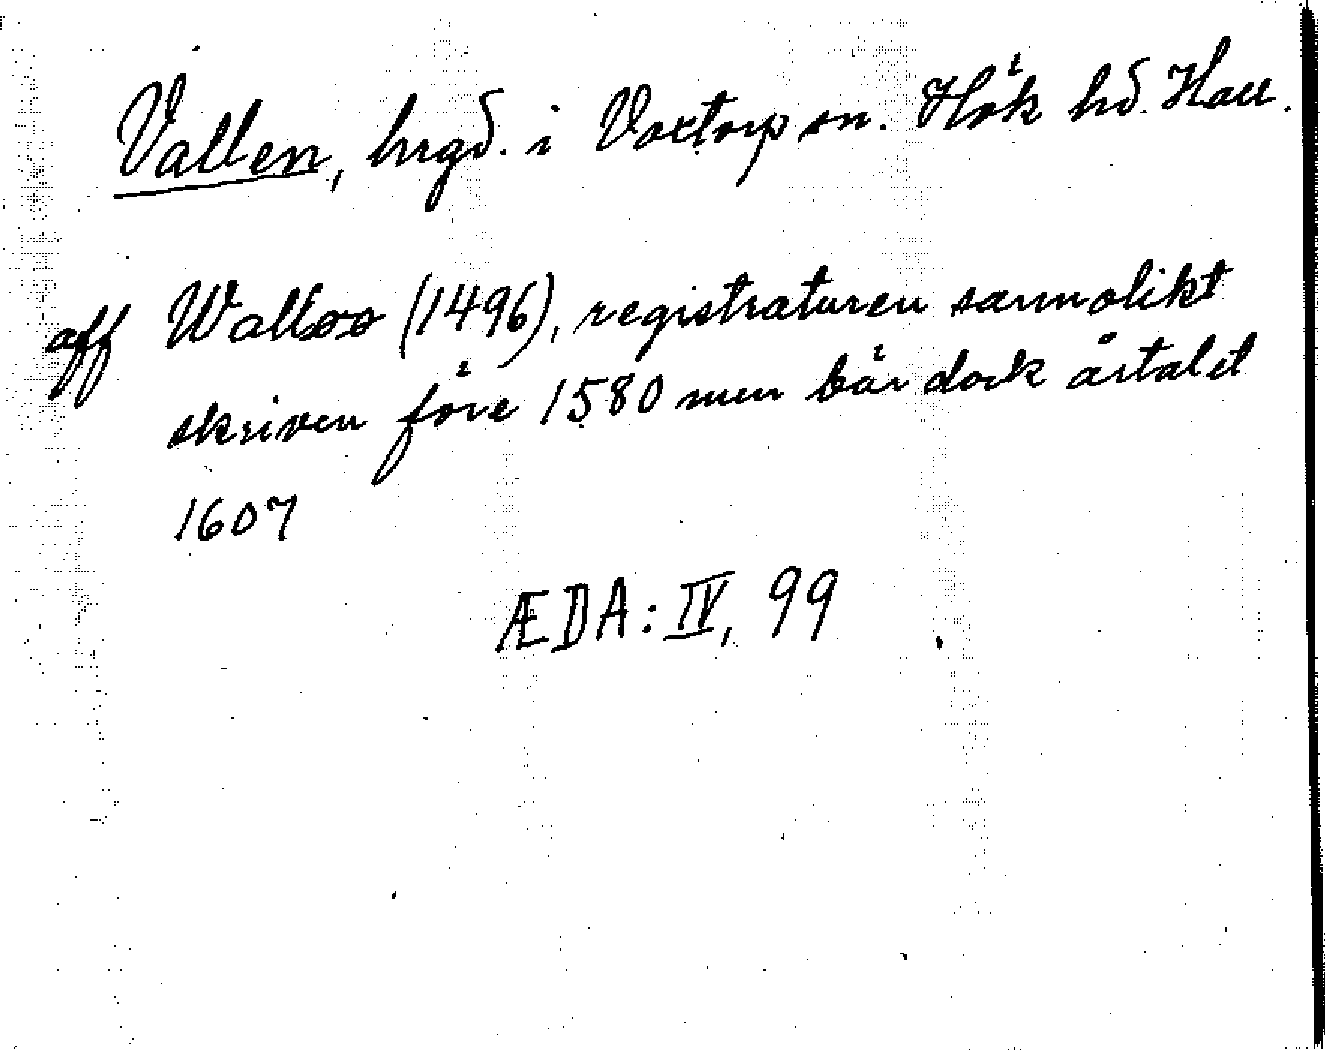 Vallen, hrgd. i Voxtorp sn. Hök hd. Hall.
aff Walløø (1496), registraturen sannolikt
skriven före 1580 men bär dock årtalet
1607
ÆDA: IV, 99